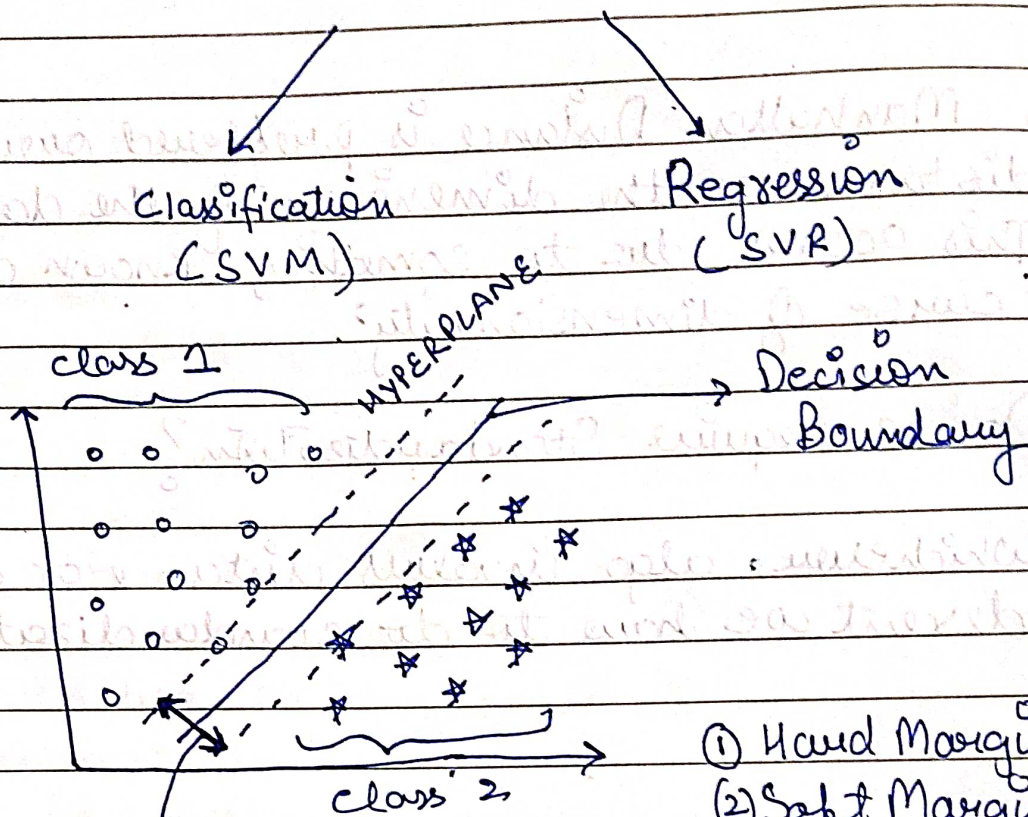 Classification
(SVM)
Regression
(SVR)
class 1
HYPERPLANE
Decision
Boundary
class 2
① Hard Margi
(2) Soft Margi